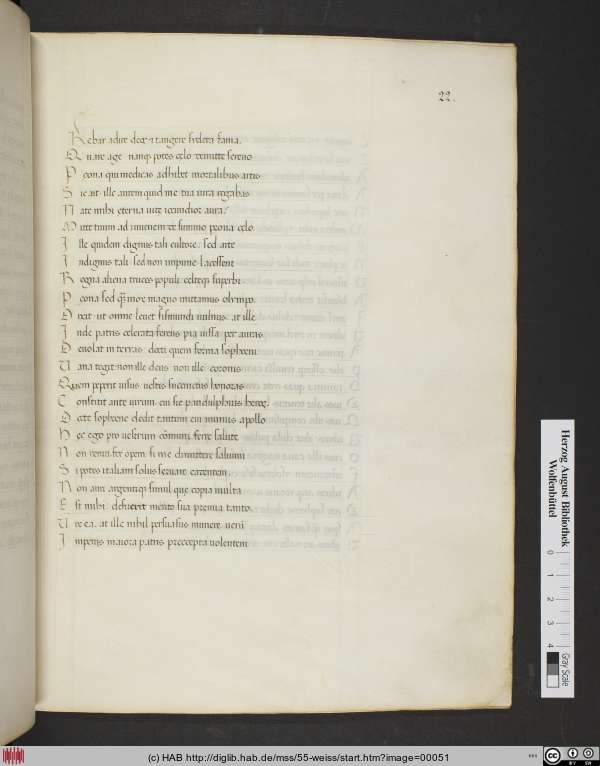 22.
Rebar adire deos & tangere sydera fama.
Quare age nanq; potes celo remitte sereno
Peona qui medicas adhibet mortalibus artis
Sic ait ille autem quid me tua iura rogabas
Nate mihi eterna uite iocundior aura?
Mitte tuum ad iuuenem de summo peona celo
Ille quidem dignus tali cultore: sed arte
Indignus tali sed non impune lacessent
Regna aliena truces populi celteq; superbi
Peona sed quem more magno mittamus olympo.
Dixit ut omne leuet sismundi uulnus at ille
Inde patris celerata ferens pia iussa per auras
Deuolat in terras dicti quem forma sophoeni
Vana tegit non ille deus non ille coronis
Quem peperit uisus uestris succinctus honoras
Constitit ante uirum cui sic pandulphius heros.
Dicite sophoene dedit tantum cui munus apollo
Hec ego pro uestrum comuni ferre salute
Non renui fer opem si me dimittere saluum
Si potes italiam solus seruare carentem.
Non auri argentiq; simul que copia multa
Est mihi defuerit merito sua premia tanto
Vire ea. at ille nihil persuasus munere ueni
Imperiis maiora patris precepta uolentem
Herzog August Bibliothek
Wolfenbüttel
0 1 2 3 4
Gray Scale
(c) HAB http://diglib.hab.de/mss/55-weiss/start.htm?image=00051
CC BY SA